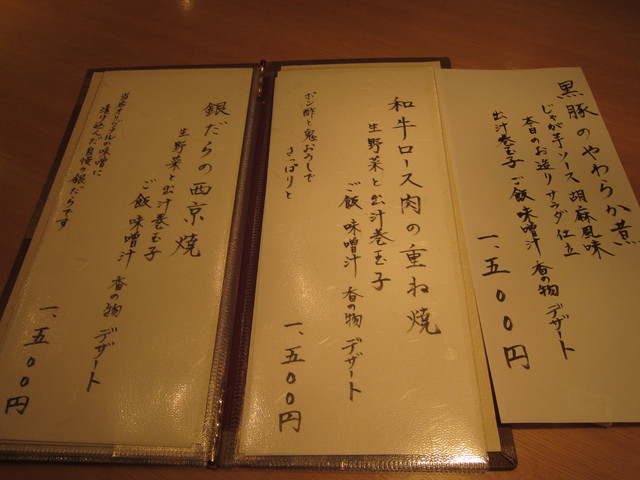 黒豚のやわらか煮
じゃが芋ソース 胡麻風味
本日のお造りサラダ仕立
出汁巻玉子 ご飯 味噌汁 香の物 デザート
一、五〇〇円
和牛ロース肉の重ね焼
生野菜と出汁巻玉子
ご飯 味噌汁 香の物 デザート
ポン酢と鬼おろしで
さっぱりと
一、五〇〇円
銀だらの西京焼
生野菜と出汁巻玉子
ご飯 味噌汁 香の物 デザート
当店オリジナルの味噌に
漬け込んだ自慢の銀だらです
一、五〇〇円